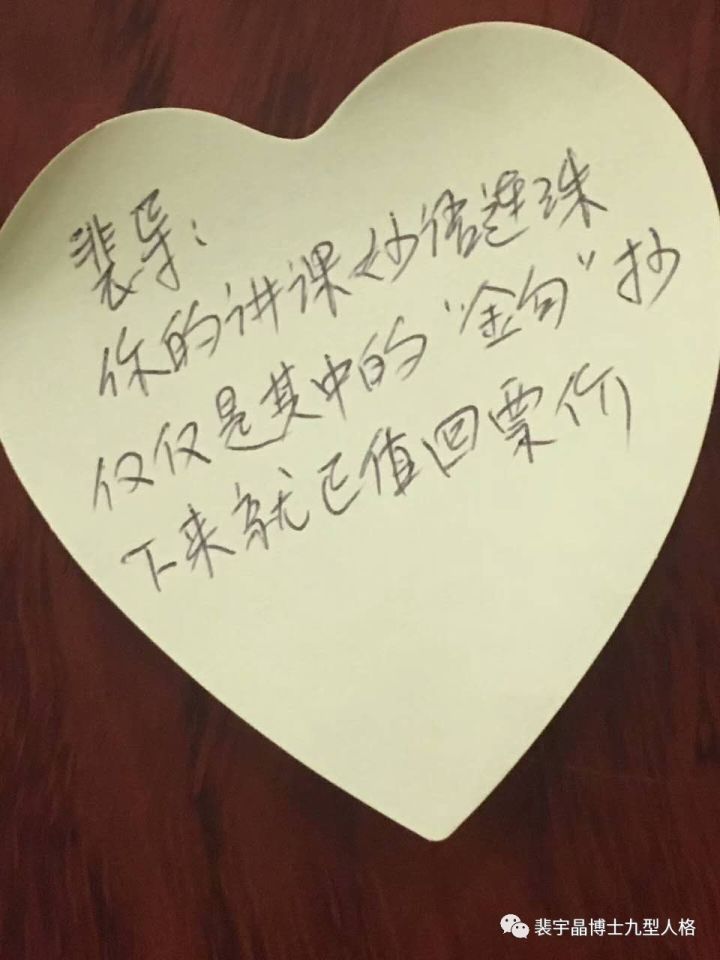 裴导：
你的讲课妙语连珠
仅仅是其中的“金句”抄
下来就已值回票价
裴宇晶博士九型人格